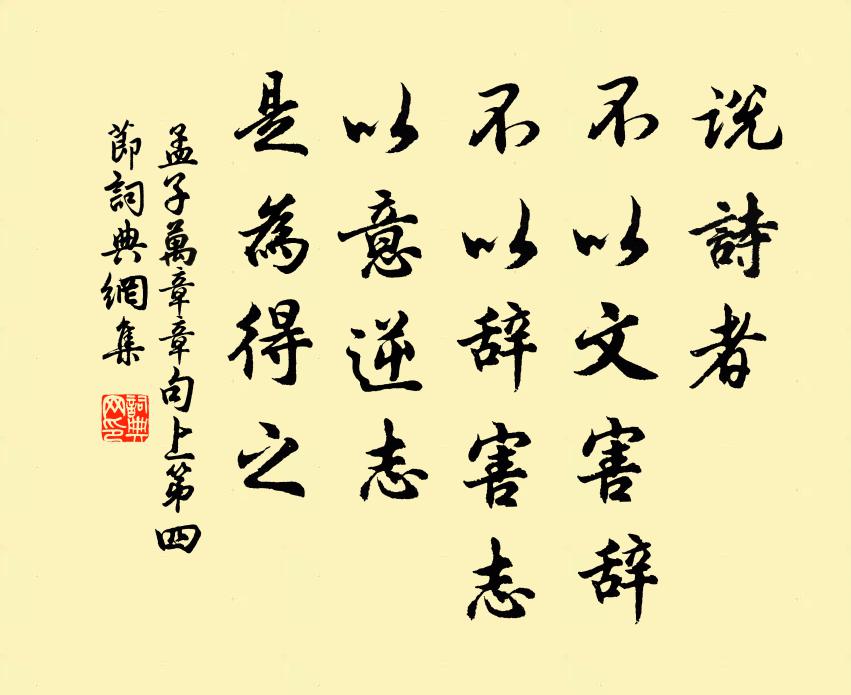 说詩者
不以文害辞
不以辞害志
以意逆志
是為得之
孟子萬章章句上第四
節詞典網集
詞典网印